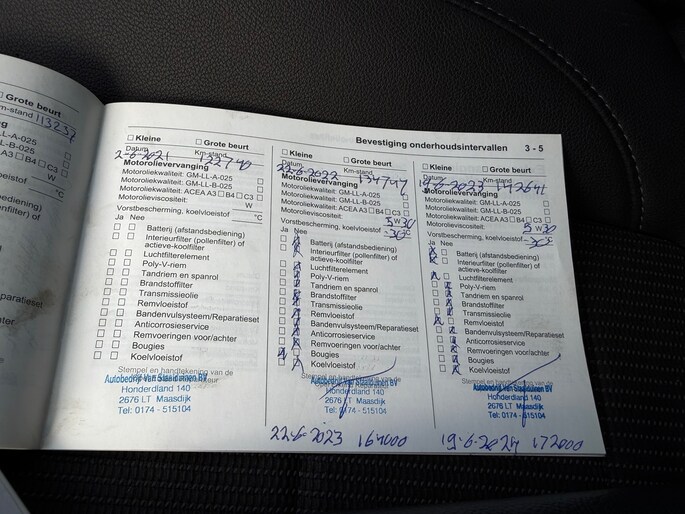 Grote beurt
m-stand 113237
LL-A-025
LL-B-025
A3 B4 C3
W
°C
(pollenfilter) of
paratieset
Bevestiging onderhoudsintervallen 3 - 5
Kleine Grote beurt
Datum Km-stand
2-6-2021 122740
Motorolievervanging
Motoroliekwaliteit: GM-LL-A-025
Motoroliekwaliteit: GM-LL-B-025
Motoroliekwaliteit: ACEA A3 B4 C3
Motorolieviscositeit: W
Vorstbescherming, koelvloeistof °C
Ja Nee
Batterij (afstandsbediening)
Interieurfilter (pollenfilter) of
actieve-koolfilter
Luchtfilterelement
Poly-V-riem
Tandriem en spanrol
Brandstoffilter
Transmissieolie
Remvloeistof
Bandenvulsysteem/Reparatieset
Anticorrosieservice
Remvoeringen voor/achter
Bougies
Koelvloeistof
Stempel en handtekening van de
Autobedrijf Van Staalduinen BV
Honderdland 140
2676 LT Maasdijk
Tel: 0174 - 515104
Kleine Grote beurt
Datum Km-stand
22-6-2022 134747
Motorolievervanging
Motoroliekwaliteit: GM-LL-A-025
Motoroliekwaliteit: GM-LL-B-025
Motoroliekwaliteit: ACEA A3 B4 C3
Motorolieviscositeit: 5 W 30
Vorstbescherming, koelvloeistof -30°C
Ja Nee
Batterij (afstandsbediening)
Interieurfilter (pollenfilter) of
actieve-koolfilter
Luchtfilterelement
Poly-V-riem
Tandriem en spanrol
Brandstoffilter
Transmissieolie
Remvloeistof
Bandenvulsysteem/Reparatieset
Anticorrosieservice
Remvoeringen voor/achter
Bougies
Koelvloeistof
Stempel en handtekening van de
Autobedrijf Van Staalduinen BV
Honderdland 140
2676 LT Maasdijk
Tel: 0174 - 515104
22-6-2023 164000
Kleine Grote beurt
Datum Km-stand
19-6-2023 142641
Motorolievervanging
Motoroliekwaliteit: GM-LL-A-025
Motoroliekwaliteit: GM-LL-B-025
Motoroliekwaliteit: ACEA A3 B4 C3
Motorolieviscositeit: 5 W 30
Vorstbescherming, koelvloeistof -30°C
Ja Nee
Batterij (afstandsbediening)
Interieurfilter (pollenfilter) of
actieve-koolfilter
Luchtfilterelement
Poly-V-riem
Tandriem en spanrol
Brandstoffilter
Transmissieolie
Remvloeistof
Bandenvulsysteem/Reparatieset
Anticorrosieservice
Remvoeringen voor/achter
Bougies
Koelvloeistof
Stempel en handtekening van de
Autobedrijf Van Staalduinen BV
Honderdland 140
2676 LT Maasdijk
Tel: 0174 - 515104
19-6-2024 172000